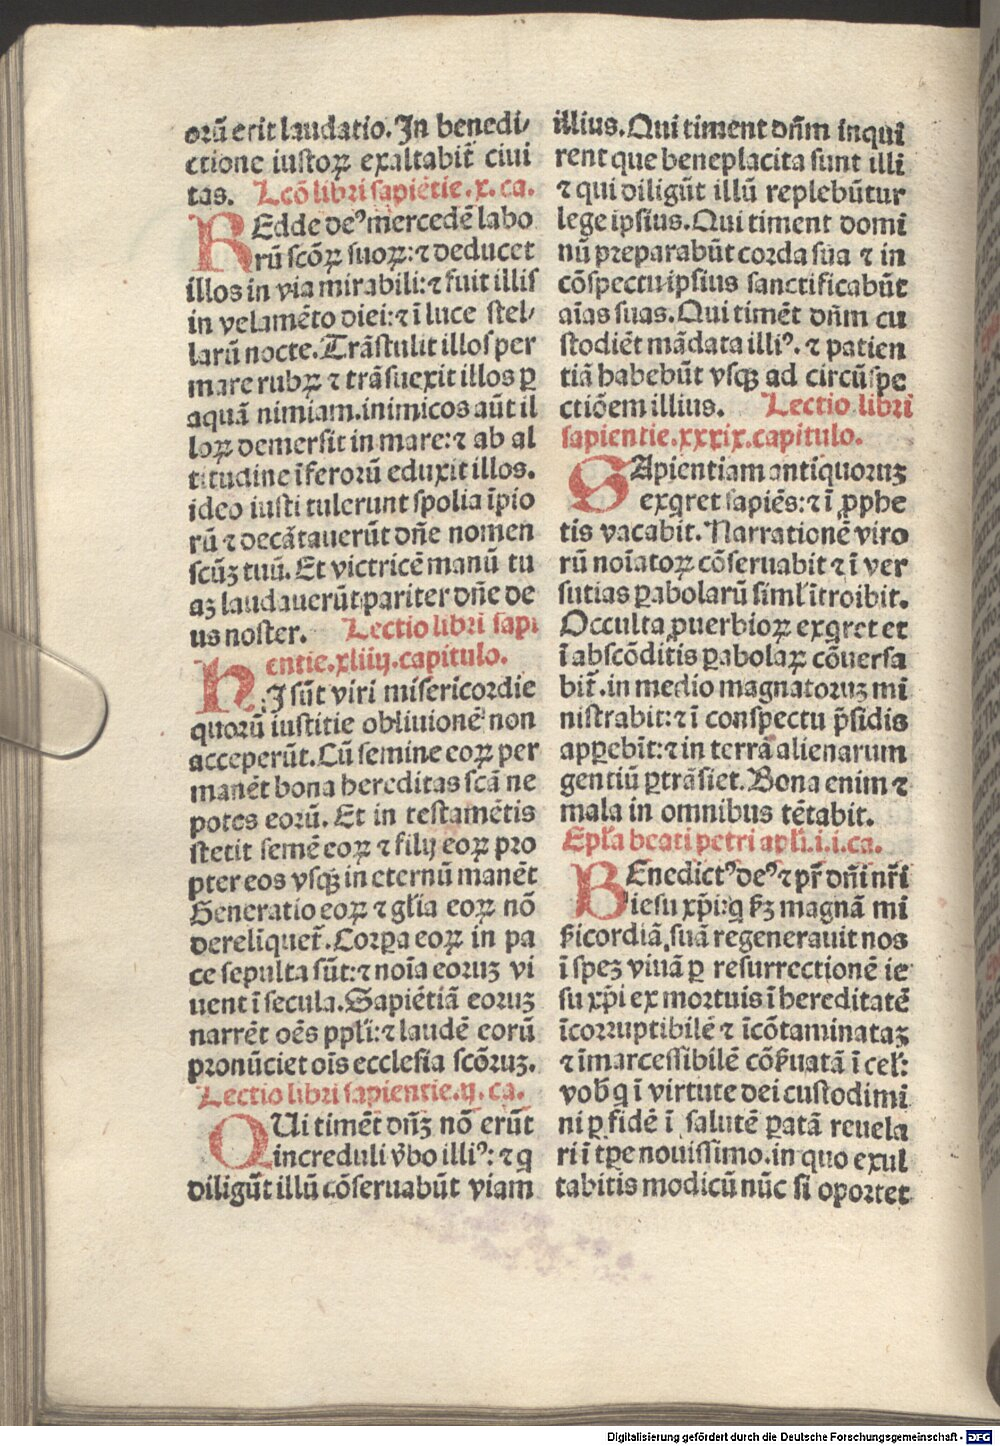 orū erit laudatio. In benedi⸗
ctione iustoꝝ exaltabit̄ ciui
tas. Lcō libri sapiētie. x. ca.
REdde deꝰ mercedē labo
rū scōꝝ suoꝝ: ⁊ deducet
illos in via mirabili: ⁊ fuit illis
in velamēto diei: ⁊ ī luce stel⸗
larū nocte. Trāstulit illos per
mare rubꝝ ⁊ trāsuexit illos ꝑ
aquā nimiam. inimicos aūt il
loꝝ demersit in mare: ⁊ ab al
titudine īferorū eduxit illos.
ideo iusti tulerunt spolia īpio
rū ⁊ decātauerūt dn̄e nomen
scūꝫ tuū. Et victricē manū tu
aꝫ laudauerūt pariter dn̄e de
us noster. Lectio libri sapi
entie. xliiij. capitulo.
HI sūt viri misericordie
quorū iustitie obliuionē non
acceperūt. Cū semine eoꝝ per
manēt bona hereditas scā ne
potes eorū. Et in testamētis
stetit semē eoꝝ ⁊ filij eoꝝ pro
pter eos vsqꝫ in eternū manēt
Generatio eoꝝ ⁊ gl̄ia eoꝝ nō
derelīquet̄. Corꝑa eoꝝ in pa
ce sepulta sūt: ⁊ noīa eoruꝫ vi
uent ī secula. Sapiētiā eoruꝫ
narrēt oēs ppl̄i: ⁊ laudē eorū
pronūciet oīs ecclesia scōruꝫ.
Lectio libri sapientie. ij. ca.
QUi timēt dn̄ꝫ nō erūt
increduli v̄bo illiꝰ: ⁊ q
diligūt illū cōseruabūt viam
illius. Qui timent dn̄m inqui
rent que beneplacita sunt illi
⁊ qui diligūt illū replebūtur
lege ipsius. Qui timent domi
nū preparabūt corda sua ⁊ in
cōspectu ipsius sanctificabūt
aīas suas. Qui timēt dn̄m cu
stodiēt mādata illiꝰ. ⁊ patien
tiā habebūt vsqꝫ ad circūspe
ctiōem illius. Lectio libri
sapientie. xxxix. capitulo.
SApientiam antiquoruꝫ
exqret sapiēs: ⁊ ī ꝓphe
tis vacabit. Narrationē viro
rū noīatoꝝ cōseruabit ⁊ ī ver
sutias ꝑabolarū siml̄ ītroibit.
Occulta ꝓuerbioꝝ exqret et
ī abscōditis ꝑabolaꝝ cōuersa
bit̄. in medio magnatoruꝫ mi
nistrabit: ⁊ ī conspectu p̄sidis
apꝑebīt: ⁊ in terrā alienarum
gentiū ꝑtrāsiet. Bona enim ⁊
mala in omnibus tētabit.
Epl̄a beati petri apl̄i. i. i. ca.
BEnedictꝰ deꝰ ⁊ pr̄ dn̄i nr̄i
iesu xp̄i: q ẜꝫ magnā mi
ẜicordiā suā regenerauit nos
ī speꝫ viuā ꝑ resurrectionē ie
su xp̄i ex mortuis ī hereditatē
īcorruptibilē ⁊ īcōtaminataꝫ
⁊ īmarcessibilē cōẜuatā ī cel̄:
vob̄ q ī virtute dei custodimi
ni ꝑ fidē ī salutē ꝑatā reuela
ri ī tp̄e nouissimo. in quo exul
tabitis modicū nūc si oportet
Digitalisierung gefördert durch die Deutsche Forschungsgemeinschaft - DFG